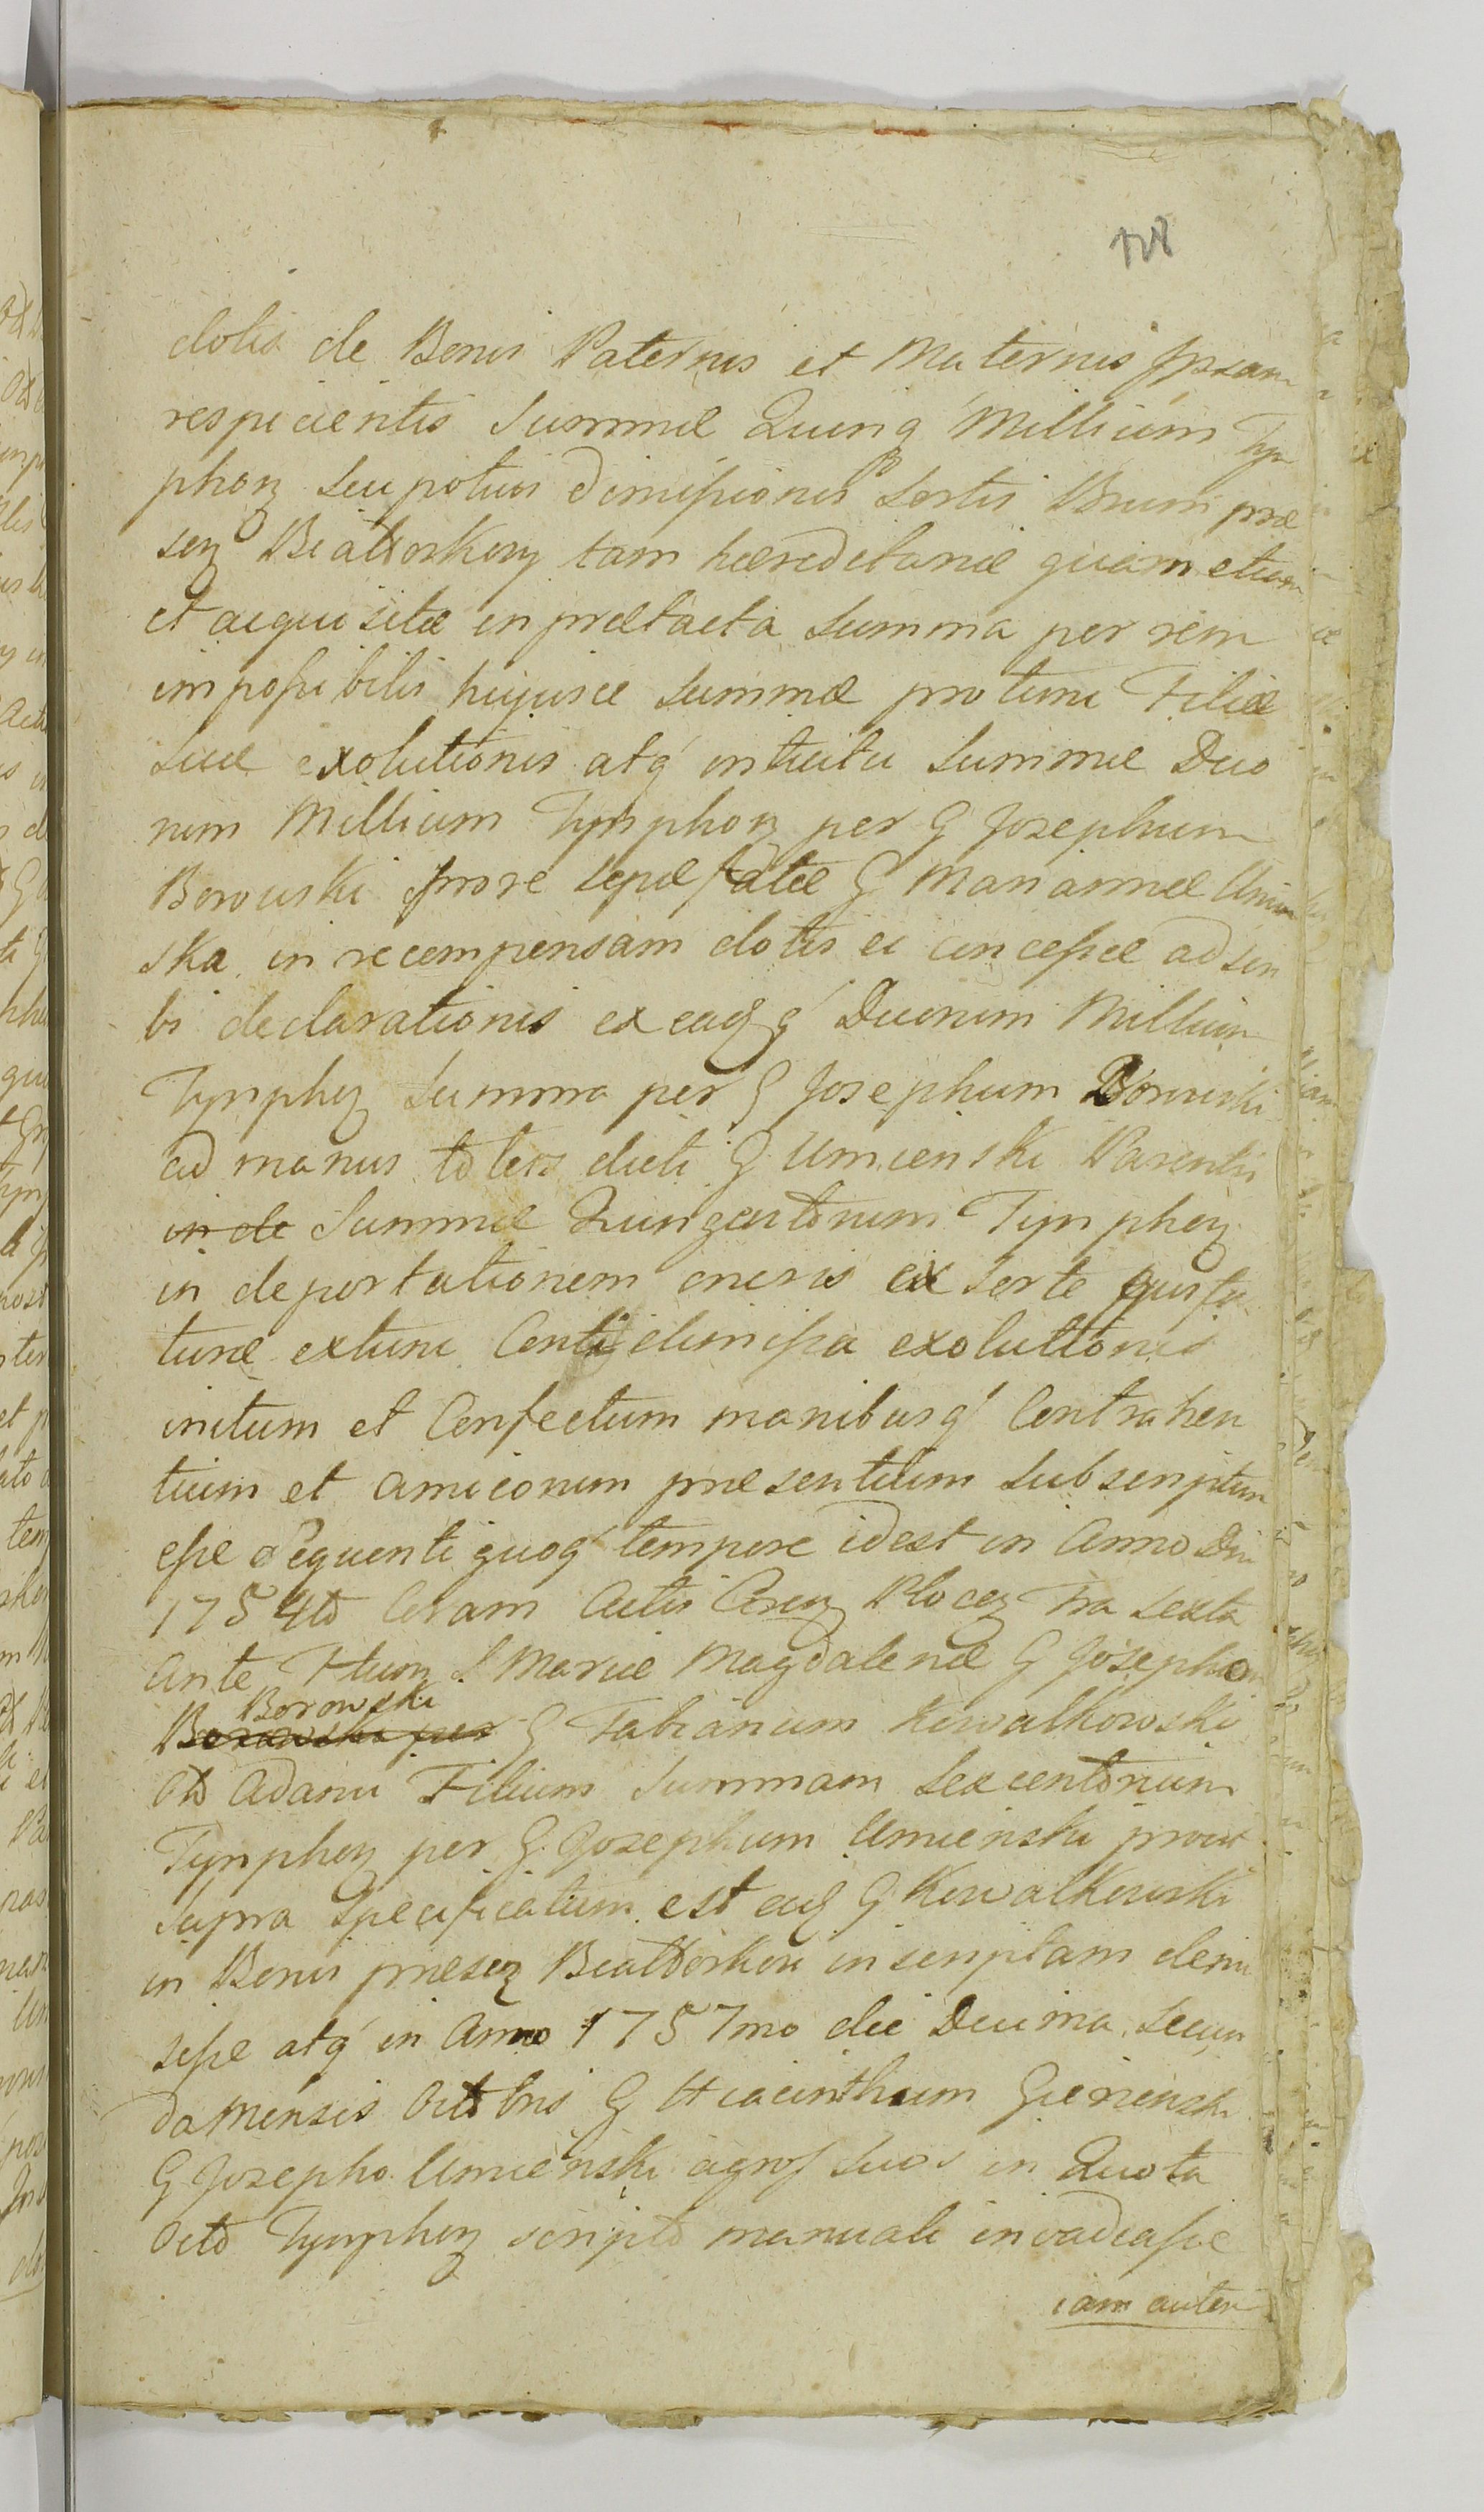 128
dotis de Bonis Paternis et Maternis Ipsam
respicientis Summæ Quinq́ Millium Tym
phoꝝ seu potius dimissionis Sortis Bonum præ
seꝝ Bialtorkoꝝ tam hæreditariæ quam etiam
et acquisitæ in prætacta Summa per rem
impossibilis hujusce Summæ protunc Filiæ
suæ exolutionis atq́ intuitu Summæ Duo
rum Millium Tymphoꝝ per G Josephum
Borowski prore sepæfatæ G Mariannæ Umien
ska in recompensam dotis ei concessæ adscri
bi declarationis ex eadq́ Duorum Millium
Tymphoꝝ Summa per G Josephum Borowski
ad manus toties dicti G Umienski Parentis
in de Summæ Quingentorum Tymphoꝝ
in deportationem oneris ex Sorte
turæ extunc exolutionis
initum et Confectum manibusq́ Contrahen
tium et amicorum præsentium subscriptum
esse Sequenti quoq́ tempore idest in Anno Dni
1754to Coram Actis Ploceꝝ Fra Sexta
ante Ftum S Mariæ Magdalenæ G Josepho
Borowski
Borowski per G Fabianum Kowalkowski
Adami Filium Summam Sexcentorum
Tymphoꝝ per G Josephum Umienski prout
supra specificatum est eid G Kowalkowski
in Bonis præseꝝ Bialtorkoꝝ inscriptam demi
sisse atq́ in Anno 1757mo die Decima Secun
da Mensis Octobris G Hiacinthum
G Josepho Umienski agros suos in Quota
Octo Tymphoꝝ scripto manuali invadiasse
iam autem